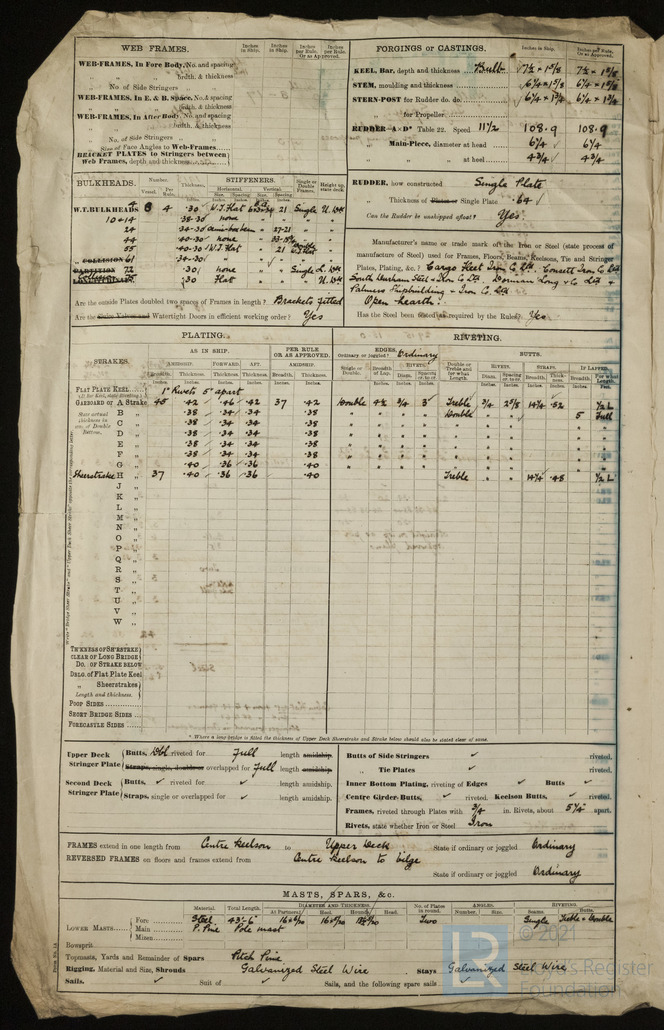 WEB FRAMES.
Inches in Ship. Inches in Ship. Inches per Rule. Or as Approved. Inches per Rule.
WEB-FRAMES, In Fore Body, No. and spacing
" " brdth. & thickness
" No. of Side Stringers
WEB-FRAMES, In E. & B. Space, No. & spacing
" " brdth. & thickness
WEB-FRAMES, In After Body, No. and spacing
" " brdth. & thickness
" No. of Side Stringers
Size of Face Angles to Web-Frames
BRACKET PLATES to Stringers between Web Frames, depth and thickness
FORGINGS or CASTINGS. Inches in Ship. Inches per Rule, Or as Approved.
KEEL, Bar, depth and thickness Bulb 7½ × 1⅝ 7½ × 1⅝
STEM, moulding and thickness 6¼ × 1⅝ 6¼ × 1⅝
STERN-POST for Rudder do. do. 6¼ × 1¾ 6¼ × 1¾
" for Propeller
RUDDER—A×D* Table 22. Speed 11½ 108.9 108.9
" Main-Piece, diameter at head 6¼ 6¼
" " at heel 4¾ 4¾
RUDDER, how constructed Single Plate
" Thickness of Plates or Single Plate .64
Can the Rudder be unshipped afloat? Yes.
Manufacturer's name or trade mark of the Iron or Steel (state process
of manufacture of Steel) used for Frames, Floors, Beams, Keelsons, Tie and Stringer
Plates, Plating, &c.? Cargo Fleet Iron Co Ltd. Consett Iron Co Ltd
South Durham Steel & Iron Co Ltd. Dorman Long & Co Ltd &
Palmers Shipbuilding & Iron Co. Ltd
Open hearth.
Has the Steel been tested as required by the Rules? Yes
BULKHEADS. Number. Thickness. STIFFENERS. Single or Double Frames. Height up, state deck
Vessel. Per Rule. Horizontal. Vertical.
Size. Spacing Size. Spacing
W.T. BULKHEADS 4 8 4 .30 W.I. Flat 21 Single U. Dk
10 & 14 .38-30 none
24 .34-30 27-21
44 .40-30 none
55 .40-30 W.I. Flat 21
" COLLISION 61 .34-30
PARTITION 72 .30 none Single L. Dk
75 .30 Flat U. Dk
Are the outside Plates doubled two spaces of Frames in length? Brackets fitted
Are the Sluice Valves and Watertight Doors in efficient working order? Yes
PLATING.
STRAKES. AS IN SHIP. PER RULE OR AS APPROVED.
AMIDSHIP. FORWARD. AFT. AMIDSHIP.
Breadth. Thickness. Thickness. Thickness. Breadth. Thickness.
RIVETING.
EDGES. Ordinary or joggled? Ordinary BUTTS.
Single or Double. Breadth of Lap. RIVETS. Double or Treble and for what Length. RIVETS. STRAPS. IF LAPPED.
Diam. Spacing cr. to cr. Diam. Spacing cr. to cr. Breadth. Thickness. Breadth. For what Length.
FLAT PLATE KEEL 1" Rivets 5" apart
GARBOARD OR A Strake 45 .42 .46 .42 37 .42 Double 4½ ¾ 3 Treble ¾ 2⅝ 14¼ .52 ½ L
B " .38 .34 .34 .38 " " " " Double " " 5 Full
C " .38 .34 .34 .38 " " " " " " " " "
D " .38 .34 .34 .38 " " " " " " " " "
E " .38 .34 .34 .38 " " " " " " " " "
F " .38 .42 .34 .38 " " " " " " " " "
G " .40 .36 .36 .40 " " " " " " " " "
Sheerstrake H " 37 .40 .36 .36 .40 Treble " " 14¼ .48 ½ L
J "
K "
L "
M "
N "
O "
P "
Q "
R "
S "
T "
U "
V "
W "
THCKNESS OF SH'RSTRKE CLEAR OF LONG BRIDGE
DO. OF STRAKE BELOW
DBLG. of Flat Plate Keel
" Sheerstrakes
Length and thickness.
POOP SIDES
SHORT BRIDGE SIDES
FORECASTLE SIDES
* Where a long bridge is fitted the thickness of Upper Deck Sheerstrake and Strake below should also be stated clear of same.
Upper Deck Stringer Plate Butts, Dbl riveted for Full length amidship.
Straps, single, double or overlapped for Full length amidship.
Second Deck Stringer Plate Butts, ✓ riveted for ✓ length amidship.
Straps, single or overlapped for ✓ length amidship.
Butts of Side Stringers ✓ riveted.
" Tie Plates ✓ riveted.
Inner Bottom Plating, riveting of Edges ✓ Butts ✓
Centre Girder Butts, ✓ riveted. Keelson Butts, ✓ riveted.
Frames, riveted through Plates with ¾ in. Rivets, about 5¼ apart.
Rivets, state whether Iron or Steel Iron
FRAMES extend in one length from Centre Keelson to Upper Deck State if ordinary or joggled Ordinary
REVERSED FRAMES on floors and frames extend from Centre Keelson to bilge
State if ordinary or joggled Ordinary
MASTS, SPARS, &c.
Material. Total Length. DIAMETER AND THICKNESS. No. of Plates in round. ANGLES. RIVETING.
At Partners. Heel. Hounds. Head. Number. Size. Seams. Butts.
LOWER MASTS Fore Steel 43'-6" Two Single Treble & Double
Main P. Pine Pole mast
Mizen
Bowsprit
Topmasts, Yards and Remainder of Spars Pitch Pine
Rigging, Material and Size, Shrouds Galvanized Steel Wire Stays Galvanized Steel Wire
Sails. ✓ Suit of ✓ Sails, and the following spare sails ✓
LR © 2021
Lloyd's Register
Foundation